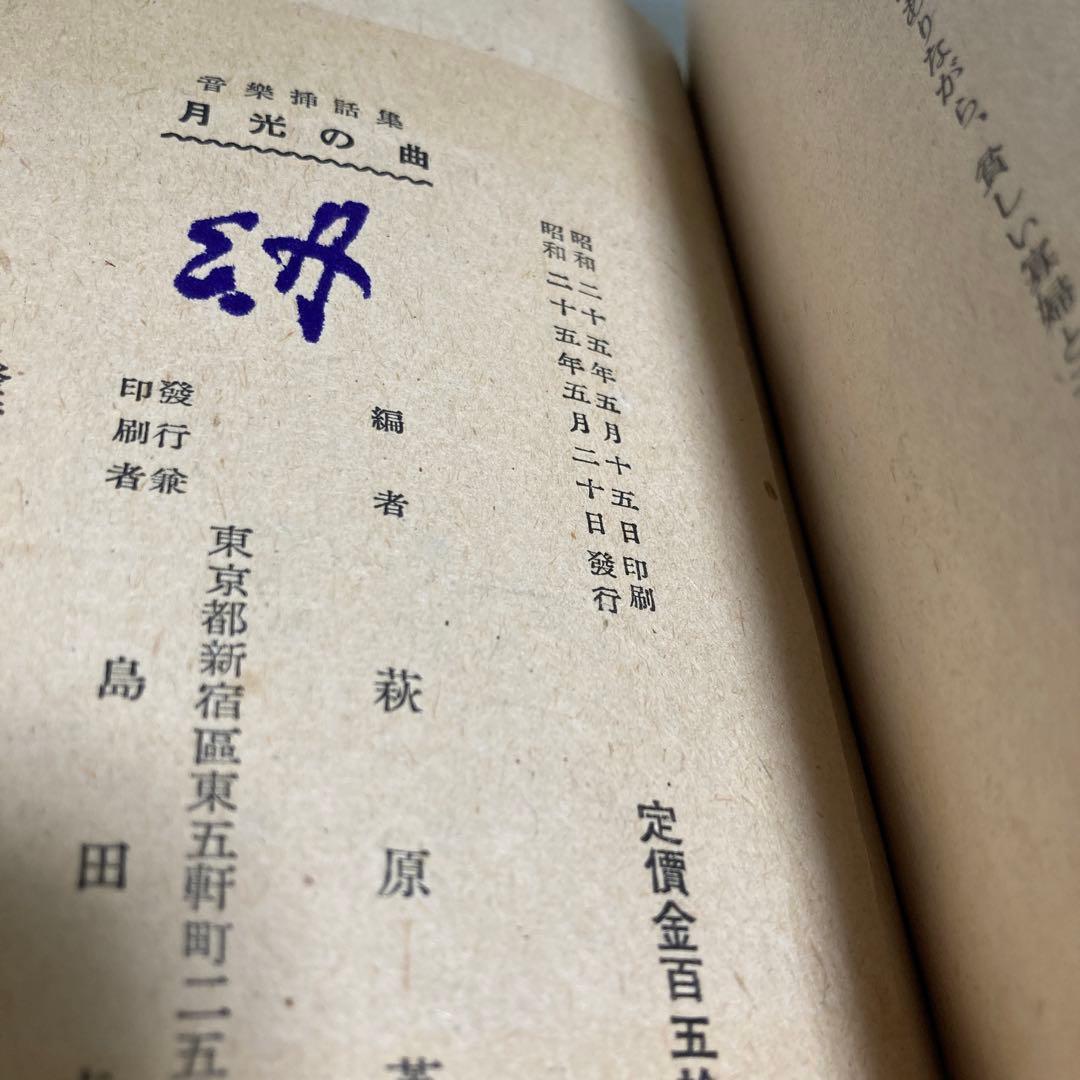 音樂挿話集
月光の曲
昭和二十五年五月十五日印刷
昭和二十五年五月二十日發行
定價金百五
編者
萩原
發行兼
印刷者
東京都新宿區東五軒町二五
島田
ありながら、貧しい寡婦と